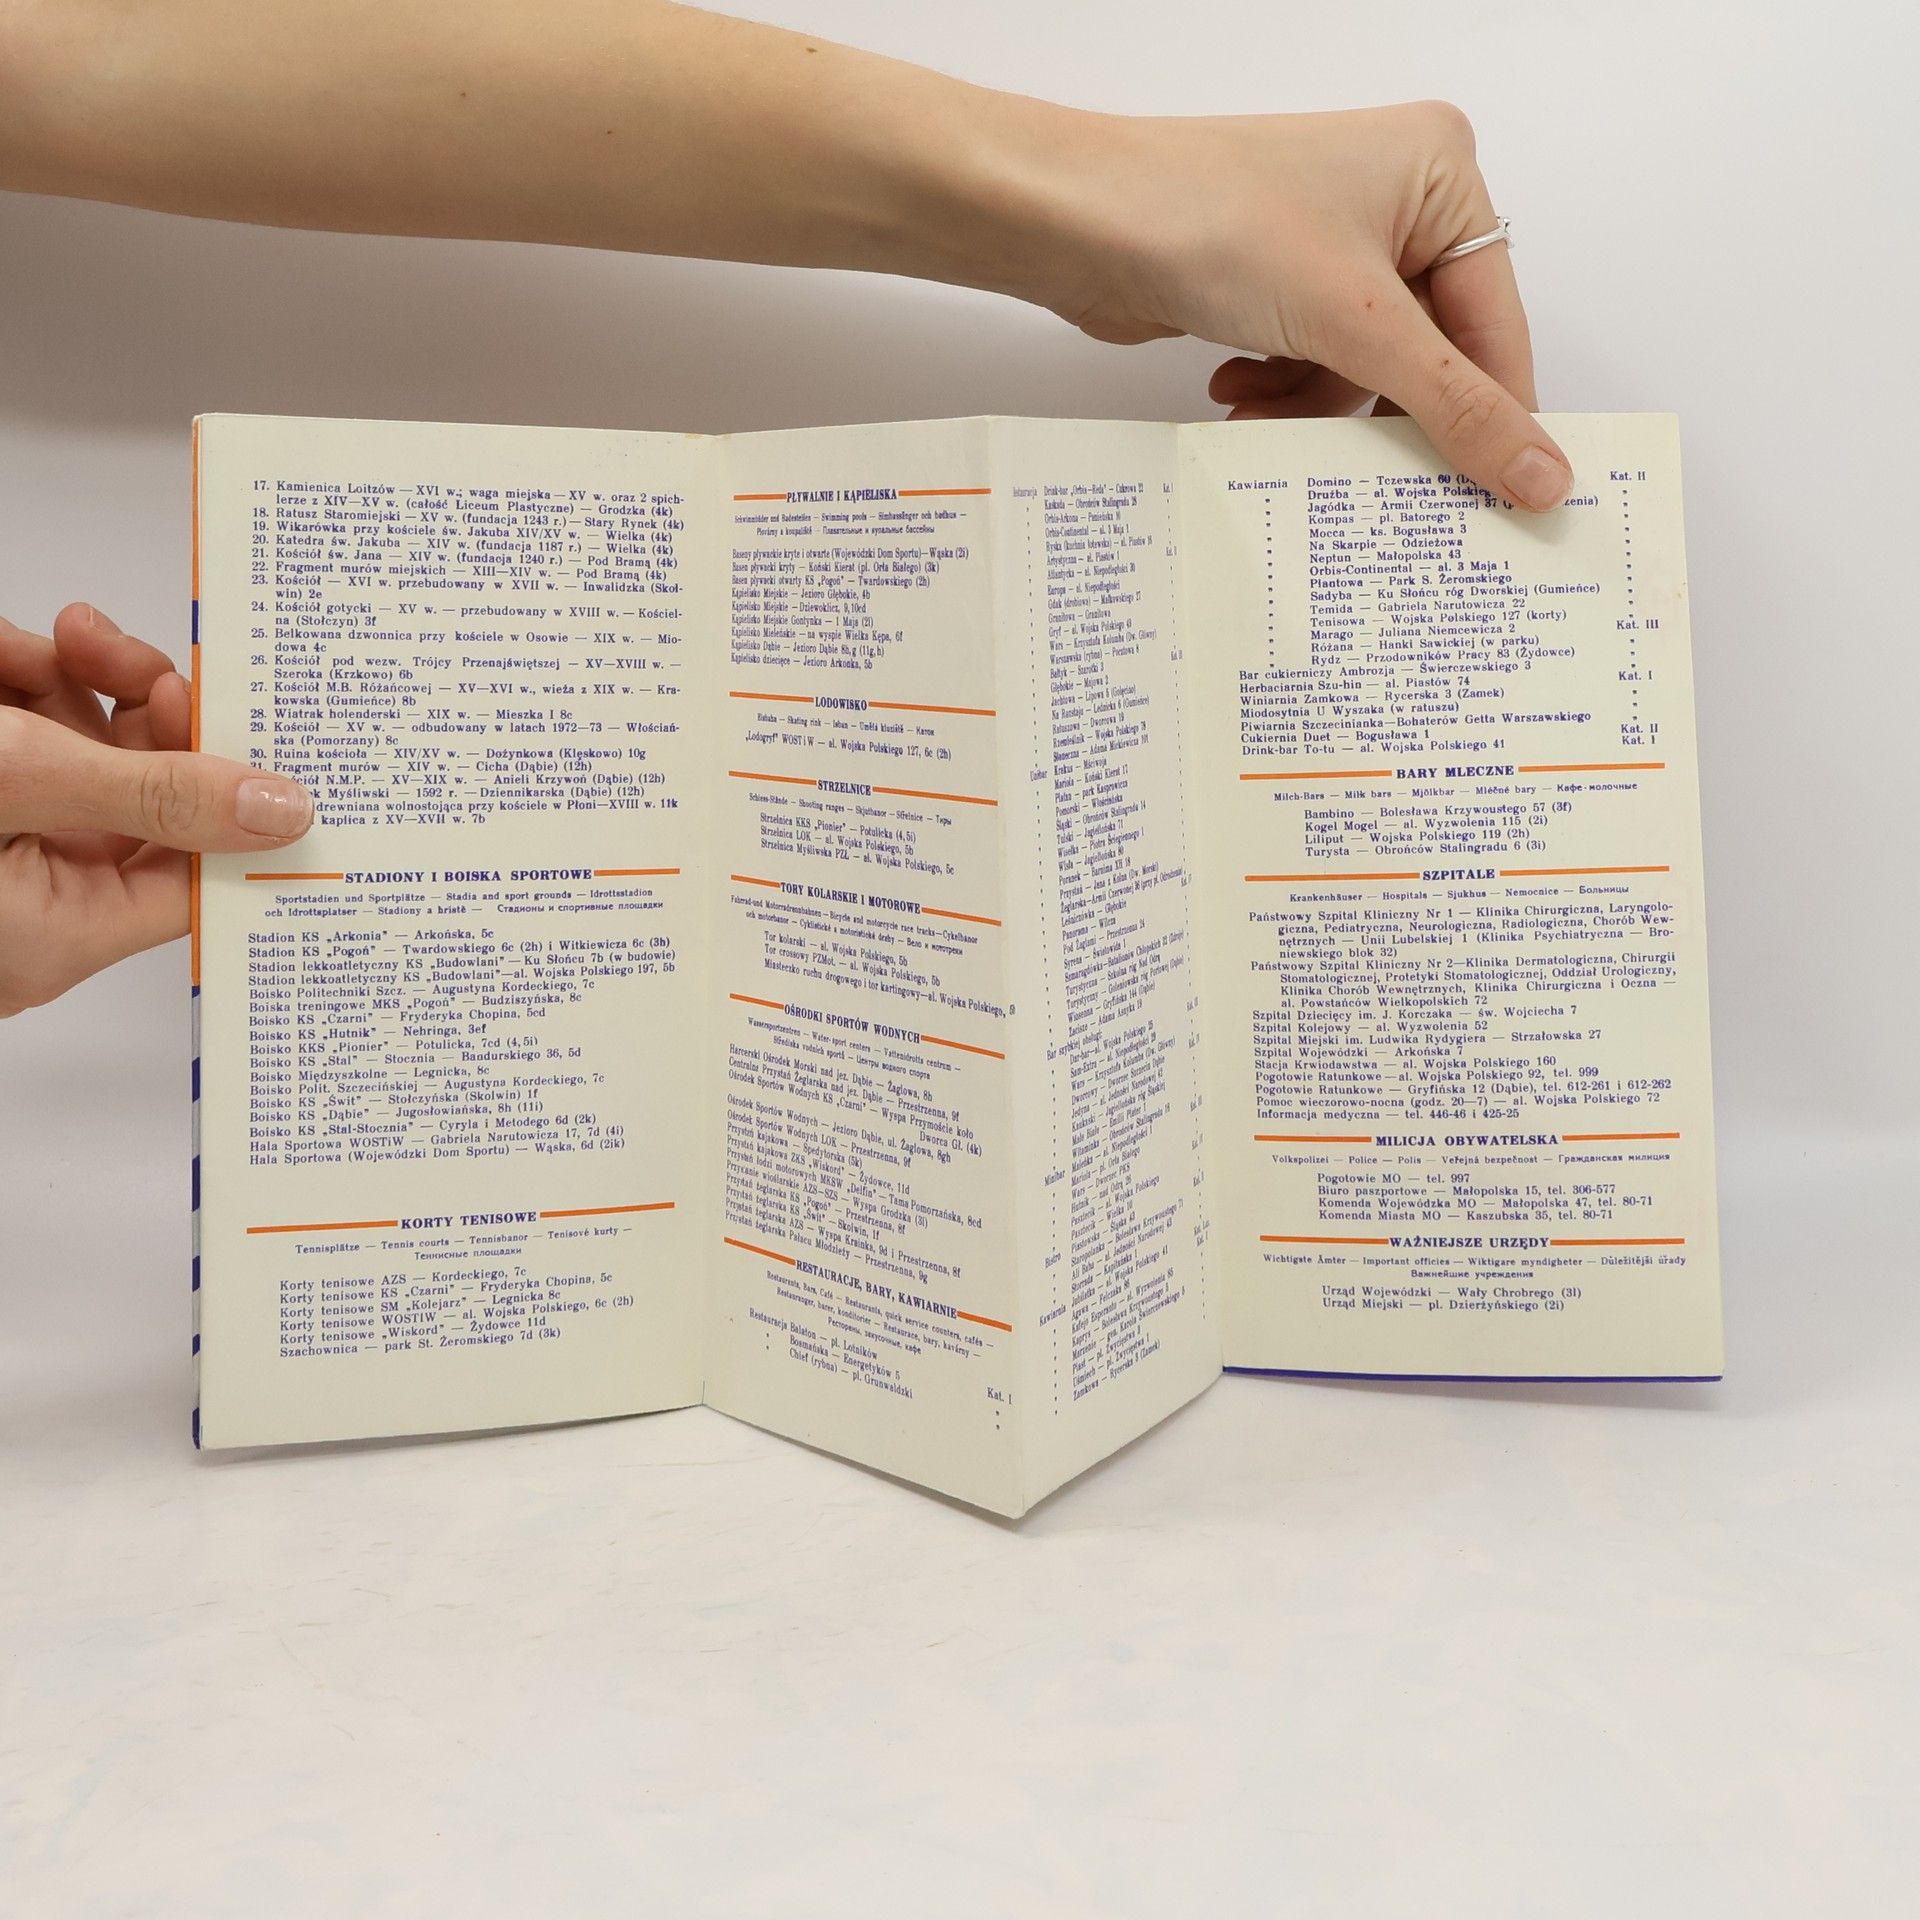 17. Kamienica Loitzów — XVI w.; waga miejska — XV w. oraz 2 spich-
lerze z XIV—XV w. (całość Liceum Plastyczne) — Grodzka (4k)
18. Ratusz Staromiejski — XV w. (fundacja 1243 r.) — Stary Rynek (4k)
19. Wikarówka przy kościele św. Jakuba XIV/XV w. — Wielka (4k)
20. Katedra św. Jakuba — XIV w. (fundacja 1187 r.) — Wielka (4k)
21. Kościół św. Jana — XIV w. (fundacja 1240 r.) — Pod Bramą (4k)
22. Fragment murów miejskich — XIII—XIV w. — Pod Bramą (4k)
23. Kościół — XVI w. przebudowany w XVII w. — Inwalidzka (Skol-
win) 2e
24. Kościół gotycki — XV w. — przebudowany w XVIII w. — Kościel-
na (Stołczyn) 3f
25. Belkowana dzwonnica przy kościele w Osowie — XIX w. — Mio-
dowa 4c
26. Kościół pod wezw. Trójcy Przenajświętszej — XV—XVIII w. —
Szeroka (Krzkowo) 6b
27. Kościół M.B. Różańcowej — XV—XVI w., wieża z XIX w. — Kra-
kowska (Gumieńce) 8b
28. Wiatrak holenderski — XIX w. — Mieszka I 8c
29. Kościół — XV w. — odbudowany w latach 1972—73 — Włościań-
ska (Pomorzany) 8c
30. Ruina kościoła — XIV/XV w. — Dożynkowa (Klęskowo) 10g
31. Fragment murów — XIV w. — Cicha (Dąbie) (12h)
N.M.P. — XV—XIX w. — Anieli Krzywoń (Dąbie) (12h)
Myśliwski — 1592 r. — Dziennikarska (Dąbie) (12h)
drewniana wolnostojąca przy kościele w Płoni—XVIII w. 11k
kaplica z XV—XVII w. 7b
STADIONY I BOISKA SPORTOWE
Sportstadien und Sportplätze — Stadia and sport grounds — Idrottsstadion
och Idrottsplatser — Stadiony a hristě — Стадионы и спортивные площадки
Stadion KS „Arkonia” — Arkońska, 5c
Stadion KS „Pogoń” — Twardowskiego 6c (2h) i Witkiewicza 6c (3h)
Stadion lekkoatletyczny KS „Budowlani” — Ku Słońcu 7b (w budowie)
Stadion lekkoatletyczny KS „Budowlani”—al. Wojska Polskiego 197, 5b
Boisko Politechniki Szcz. — Augustyna Kordeckiego, 7c
Boiska treningowe MKS „Pogoń” — Budziszyńska, 8c
Boisko KS „Czarni” — Fryderyka Chopina, 5cd
Boisko KS „Hutnik” — Nehringa, 3ef
Boisko KKS „Pionier” — Potulicka, 7cd (4,5i)
Boisko KS „Stal” — Stocznia — Bandurskiego 36, 5d
Boisko Międzyszkolne — Legnicka, 8c
Boisko Polit. Szczecińskiej — Augustyna Kordeckiego, 7c
Boisko KS „Świt” — Stołczyńska (Skolwin) 1f
Boisko KS „Dąbie” — Jugosłowiańska, 8h (11i)
Boisko KS „Stal-Stocznia” — Cyryla i Metodego 6d (2k)
Hala Sportowa WOSTiW — Gabriela Narutowicza 17, 7d (4i)
Hala Sportowa (Wojewódzki Dom Sportu) — Wąska, 6d (2ik)
KORTY TENISOWE
Tennisplätze — Tennis courts — Tennisbanor — Tenisové kurty —
Теннисные площадки
Korty tenisowe AZS — Kordeckiego, 7c
Korty tenisowe KS „Czarni” — Fryderyka Chopina, 5c
Korty tenisowe SM „Kolejarz” — Legnicka 8c
Korty tenisowe WOSTIW — al. Wojska Polskiego, 6c (2h)
Korty tenisowe „Wiskord” — Żydowce 11d
Szachownica — park St. Żeromskiego 7d (3k)
PŁYWALNIE I KĄPIELISKA
Schwimmbäder und Badestellen — Swimming pools — Simbassänger och badhus —
Plovárny a koupaliště — Плавательные и купальные бассейны
Baseny pływackie kryte i otwarte (Wojewódzki Dom Sportu)— Wąska (2i)
Basen pływacki kryty — Koński Kierat (pl. Orła Białego) (3k)
Basen pływacki otwarty KS „Pogoń” — Twardowskiego (2h)
Kąpielisko Miejskie — Jezioro Głębokie, 4b
Kąpielisko Miejskie — Dziewoklicz, 9,10cd
Kąpielisko Miejskie Gontynka — 1 Maja (2l)
Kąpielisko Mieleńskie — na wyspie Wielka Kępa, 6f
Kąpielisko Dąbie — Jezioro Dąbie 8h,g (11g,h)
Kąpielisko dziecięce — Jezioro Arkonka, 5b
LODOWISKO
Eisbahn — Skating rink — Isban — Umělá kluziště — Каток
„Lodogryf” WOSTiW — al. Wojska Polskiego 127, 6c (2h)
STRZELNICE
Schiess-Stände — Shooting ranges — Skjutbanor — Střelnice — Тиры
Strzelnica KKS „Pionier” — Potulicka (4,5i)
Strzelnica LOK — al. Wojska Polskiego, 5b
Strzelnica Myśliwska PZŁ — al. Wojska Polskiego, 5c
TORY KOLARSKIE I MOTOROWE
Fahrrad-und Motorradrennbahnen — Bicycle and motorcycle race tracks — Cykelbanor
och motorbanor — Cyklistické a motoristické dráhy — Вело и мототреки
Tor kolarski — al. Wojska Polskiego, 5b
Tor crossowy PZMot. — al. Wojska Polskiego, 5b
Miasteczko ruchu drogowego i tor kartingowy—al. Wojska Polskiego,
OŚRODKI SPORTÓW WODNYCH
Wassersportzentren — Water-sport centers — Vattenidrotts centrem —
Střediska vodních sportů — Центры водного спорта
Harcerski Ośrodek Morski nad jez. Dąbie — Żaglowa, 8h
Centralna Przystań Żeglarska nad jez. Dąbie — Przestrzenna, 9f
Ośrodek Sportów Wodnych KS „Czarni” — Wyspa Przymoście koło
Dworca Gł. (4k)
Ośrodek Sportów Wodnych — Jezioro Dąbie, ul. Żaglowa, 8gh
Ośrodek Sportów Wodnych LOK — Przestrzenna, 9f
Przystań kajakowa — Spedytorska (5k)
Przystań kajakowa ZKS „Wiskord” — Żydowce, 11d
Przystań łodzi motorowych MKSW „Delfin” — Tama Pomorzańska, 8cd
Przystanie wioślarskie AZS—SZS — Wyspa Grodzka (3l)
Przystań żeglarska KS „Pogoń” — Przestrzenna, 8f
Przystań żeglarska KS „Świt” — Skolwin, 1f
Przystań żeglarska AZS — Wyspa Krainka, 9d i Przestrzenna, 8f
Przystań żeglarska Pałacu Młodzieży — Przestrzenna, 9g
RESTAURACJE, BARY, KAWIARNIE
Restaurants, Bars, Café — Restaurants, quick service counters, cafés —
Restauranger, barer, konditorier — Restaurace, bary, kavárny —
Рестораны, закусочные, кафе
Restauracja Balaton — pl. Lotników Kat. I
" Bosmańska — Energetyków 5 "
" Chief (rybna) — pl. Grunwaldzki "
Restauracja Drink-bar „Orbis—Reda” — Cukrowa 22 Kat. I
Kaskada — Obrońców Stalingradu 28
Orbis-Arkona — Panieńska 10
Orbis-Continental — al. 3 Maja 1
Ryska (kuchnia łotewska) — al. Piastów 16
Artystyczna — al. Piastów 1
Atlantycka — al. Niepodległości 30
Europa — al. Niepodległości
Gdak (drobiowa) — Małkowskiego 27
Granitowa — Granitowa
Gryf — al. Wojska Polskiego 49
Wars — Krzysztofa Kolumba (Dw. Główny)
Warszawska (rybna) — Pocztowa 8
Bałtyk — Szarotki 3
Głębokie — Majowa 2
Jachtowa — Lipowa 5 (Golęcino)
Na Rozstaju — Lednicka 6 (Gumieńce)
Ratuszowa — Dworcowa 19
Rzemieślnik — Wojska Polskiego 78
Słoneczna — Adama Mickiewicza 101
Unibar Krakus — Mściwoja
Mariola — Koński Kierat 17
Platan — park Kasprowicza
Pomorski — Włościańska
Śląski — Obrońców Stalingradu 14
Tulski — Jagiellońska 71
Wiselka — Piotra Ściegiennego 1
Wisła — Jagiellońska 80
Poranek — Barnima XII 18
Przystań — Jana z Kolna (Dw. Morski)
Żeglarska—Armii Czerwonej 36 (przy pl. Odrodzenia)
Leśniczówka — Głębokie
Panorama — Wilcza
Pod Żaglami — Przestrzenna 24
Syrena — Światowida 1
Szmaragdówka—Batalionów Chłopskich 22 (Zdroje)
Turystyczna — Szkolna róg Nad Odrą
Turystyczny — Goleniowska róg Portowej (Dąbie)
Wiosenna — Gryfińska 144 (Dąbie)
Zacisze — Adama Asnyka 19
Bar szybkiej obsługi:
Dar-bar—al. Wojska Polskiego 25
Sam-Extra — al. Niepodległości 29
Wars — Krzysztofa Kolumba (Dw. Główny)
Dworcowy — Dworzec Szczecin Dąbie
Jedyna — al. Jedności Narodowej 42
Kaukaski — Jagiellońska róg Śląskiej
Małe Białe — Emilii Plater 1
Witaminka — Obrońców Stalingradu 18
Maleńka — al. Niepodległości 1
Minibar Mariola — pl. Orła Białego
Wars — Dworzec PKS
Hutnik — nad Odrą 26
Pasztecik — al. Wojska Polskiego
Pasztecik — Wielka 10
Piastowska — Śląska 43
Bistro Staropolanka — Bolesława Krzywoustego 71
Ali Baba — al. Jedności Narodowej 43
Storrada — Kapitańska 1
Kawiarnia Jubilatka — al. Wojska Polskiego 41
Agawa — Felczaka 86
Kafejo Esperanto — al. Wyzwolenia 85
Kaprys — Bolesława Krzywoustego 8
Marzenie — gen. Karola Świerczewskiego 8
Piast — pl. Zwycięstwa 3
Uśmiech — pl. Zwycięstwa 1
Zamkowa — Rycerska 3 (Zamek)
Kawiarnia Domino — Tczewska 60 Kat. II
" Drużba — al. Wojska "
" Jagódka — Armii Czerwonej 37 "
" Kompas — pl. Batorego 2 "
" Mocca — ks. Bogusława 3 "
" Na Skarpie — Odzieżowa "
" Neptun — Małopolska 43 "
" Orbis-Continental — al. 3 Maja 1 "
" Plantowa — Park S. Żeromskiego "
" Sadyba — Ku Słońcu róg Dworskiej (Gumieńce) "
" Temida — Gabriela Narutowicza 22 "
" Tenisowa — Wojska Polskiego 127 (korty) "
" Marago — Juliana Niemcewicza 2 Kat. III
" Różana — Hanki Sawickiej (w parku) "
" Rydz — Przodowników Pracy 83 (Żydowce) "
Bar cukierniczy Ambrozja — Świerczewskiego 3 "
Herbaciarnia Szu-hin — al. Piastów 74 Kat. I
Winiarnia Zamkowa — Rycerska 3 (Zamek) "
Miodosytnia U Wyszaka (w ratuszu) "
Piwiarnia Szczecinianka—Bohaterów Getta Warszawskiego "
Cukiernia Duet — Bogusława 1 Kat. II
Drink-bar To-tu — al. Wojska Polskiego 41 Kat. I
BARY MLECZNE
Milch-Bars — Milk bars — Mjölkbar — Mléčné bary — Кафе-молочные
Bambino — Bolesława Krzywoustego 57 (3f)
Kogel Mogel — al. Wyzwolenia 115 (2i)
Liliput — Wojska Polskiego 119 (2h)
Turysta — Obrońców Stalingradu 6 (3i)
SZPITALE
Krankenhäuser — Hospitals — Sjukhus — Nemocnice — Больницы
Państwowy Szpital Kliniczny Nr 1 — Klinika Chirurgiczna, Laryngolo-
giczna, Pediatryczna, Neurologiczna, Radiologiczna, Chorób Wew-
nętrznych — Unii Lubelskiej 1 (Klinika Psychiatryczna — Bro-
niewskiego blok 32)
Państwowy Szpital Kliniczny Nr 2—Klinika Dermatologiczna, Chirurgii
Stomatologicznej, Protetyki Stomatologicznej, Oddział Urologiczny,
Klinika Chorób Wewnętrznych, Klinika Chirurgiczna i Oczna —
al. Powstańców Wielkopolskich 72
Szpital Dziecięcy im. J. Korczaka — św. Wojciecha 7
Szpital Kolejowy — al. Wyzwolenia 52
Szpital Miejski im. Ludwika Rydygiera — Strzałowska 27
Szpital Wojewódzki — Arkońska 7
Stacja Krwiodawstwa — al. Wojska Polskiego 160
Pogotowie Ratunkowe—al. Wojska Polskiego 92, tel. 999
Pogotowie Ratunkowe — Gryfińska 12 (Dąbie), tel. 612-261 i 612-262
Pomoc wieczorowo-nocna (godz. 20—7) — al. Wojska Polskiego 72
Informacja medyczna — tel. 446-46 i 425-25
MILICJA OBYWATELSKA
Volkspolizei — Police — Polis — Veřejná bezpečnost — Гражданская милиция
Pogotowie MO — tel. 997
Biuro paszportowe — Małopolska 15, tel. 306-577
Komenda Wojewódzka MO — Małopolska 47, tel. 80-71
Komenda Miasta MO — Kaszubska 35, tel. 80-71
WAŻNIEJSZE URZĘDY
Wichtigste Ämter — Important officies — Wiktigare myndigheter — Důležitější úřady
Важнейшие учреждения
Urząd Wojewódzki — Wały Chrobrego (3l)
Urząd Miejski — pl. Dzierżyńskiego (2i)